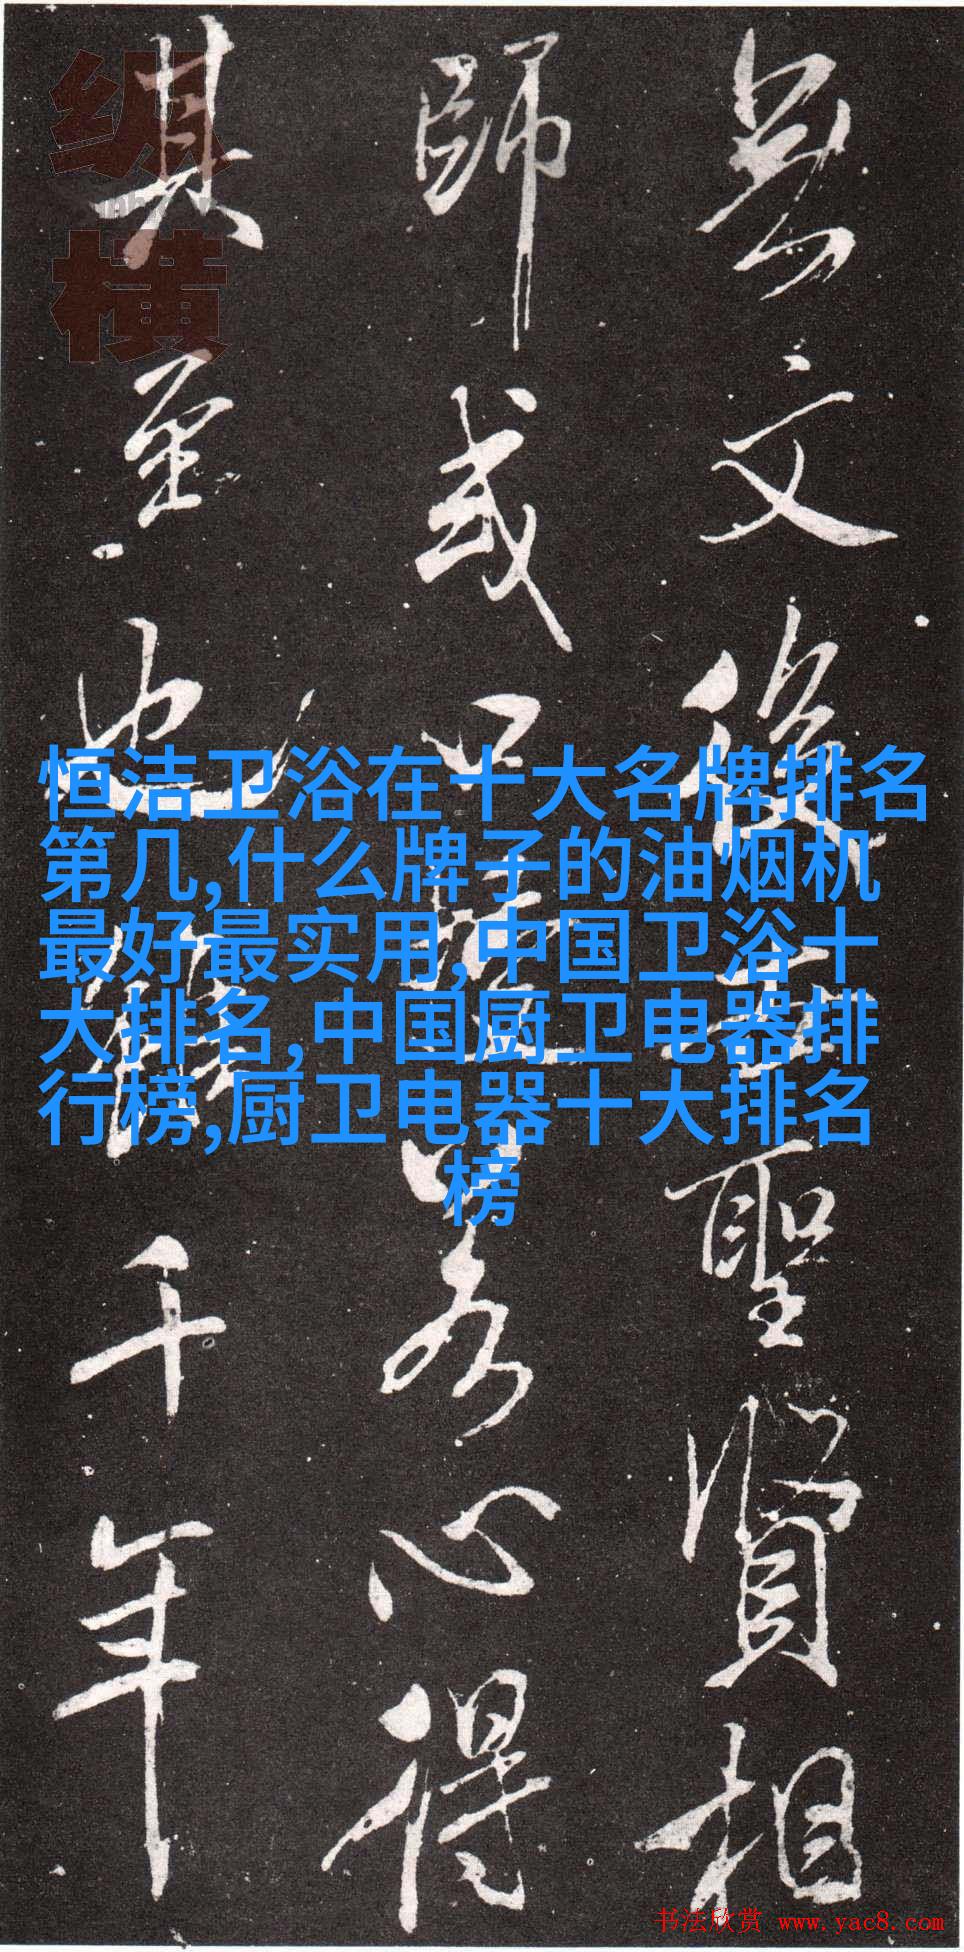 文後聖賢相
師或口心得
其至也千年
横
恒洁卫浴在十大名牌排名
第几,什么牌子的油烟机
最好最实用,中国卫浴十
大排名,中国厨卫电器排
行榜,厨卫电器十大排名
榜
书法欣赏 www.yac8.com